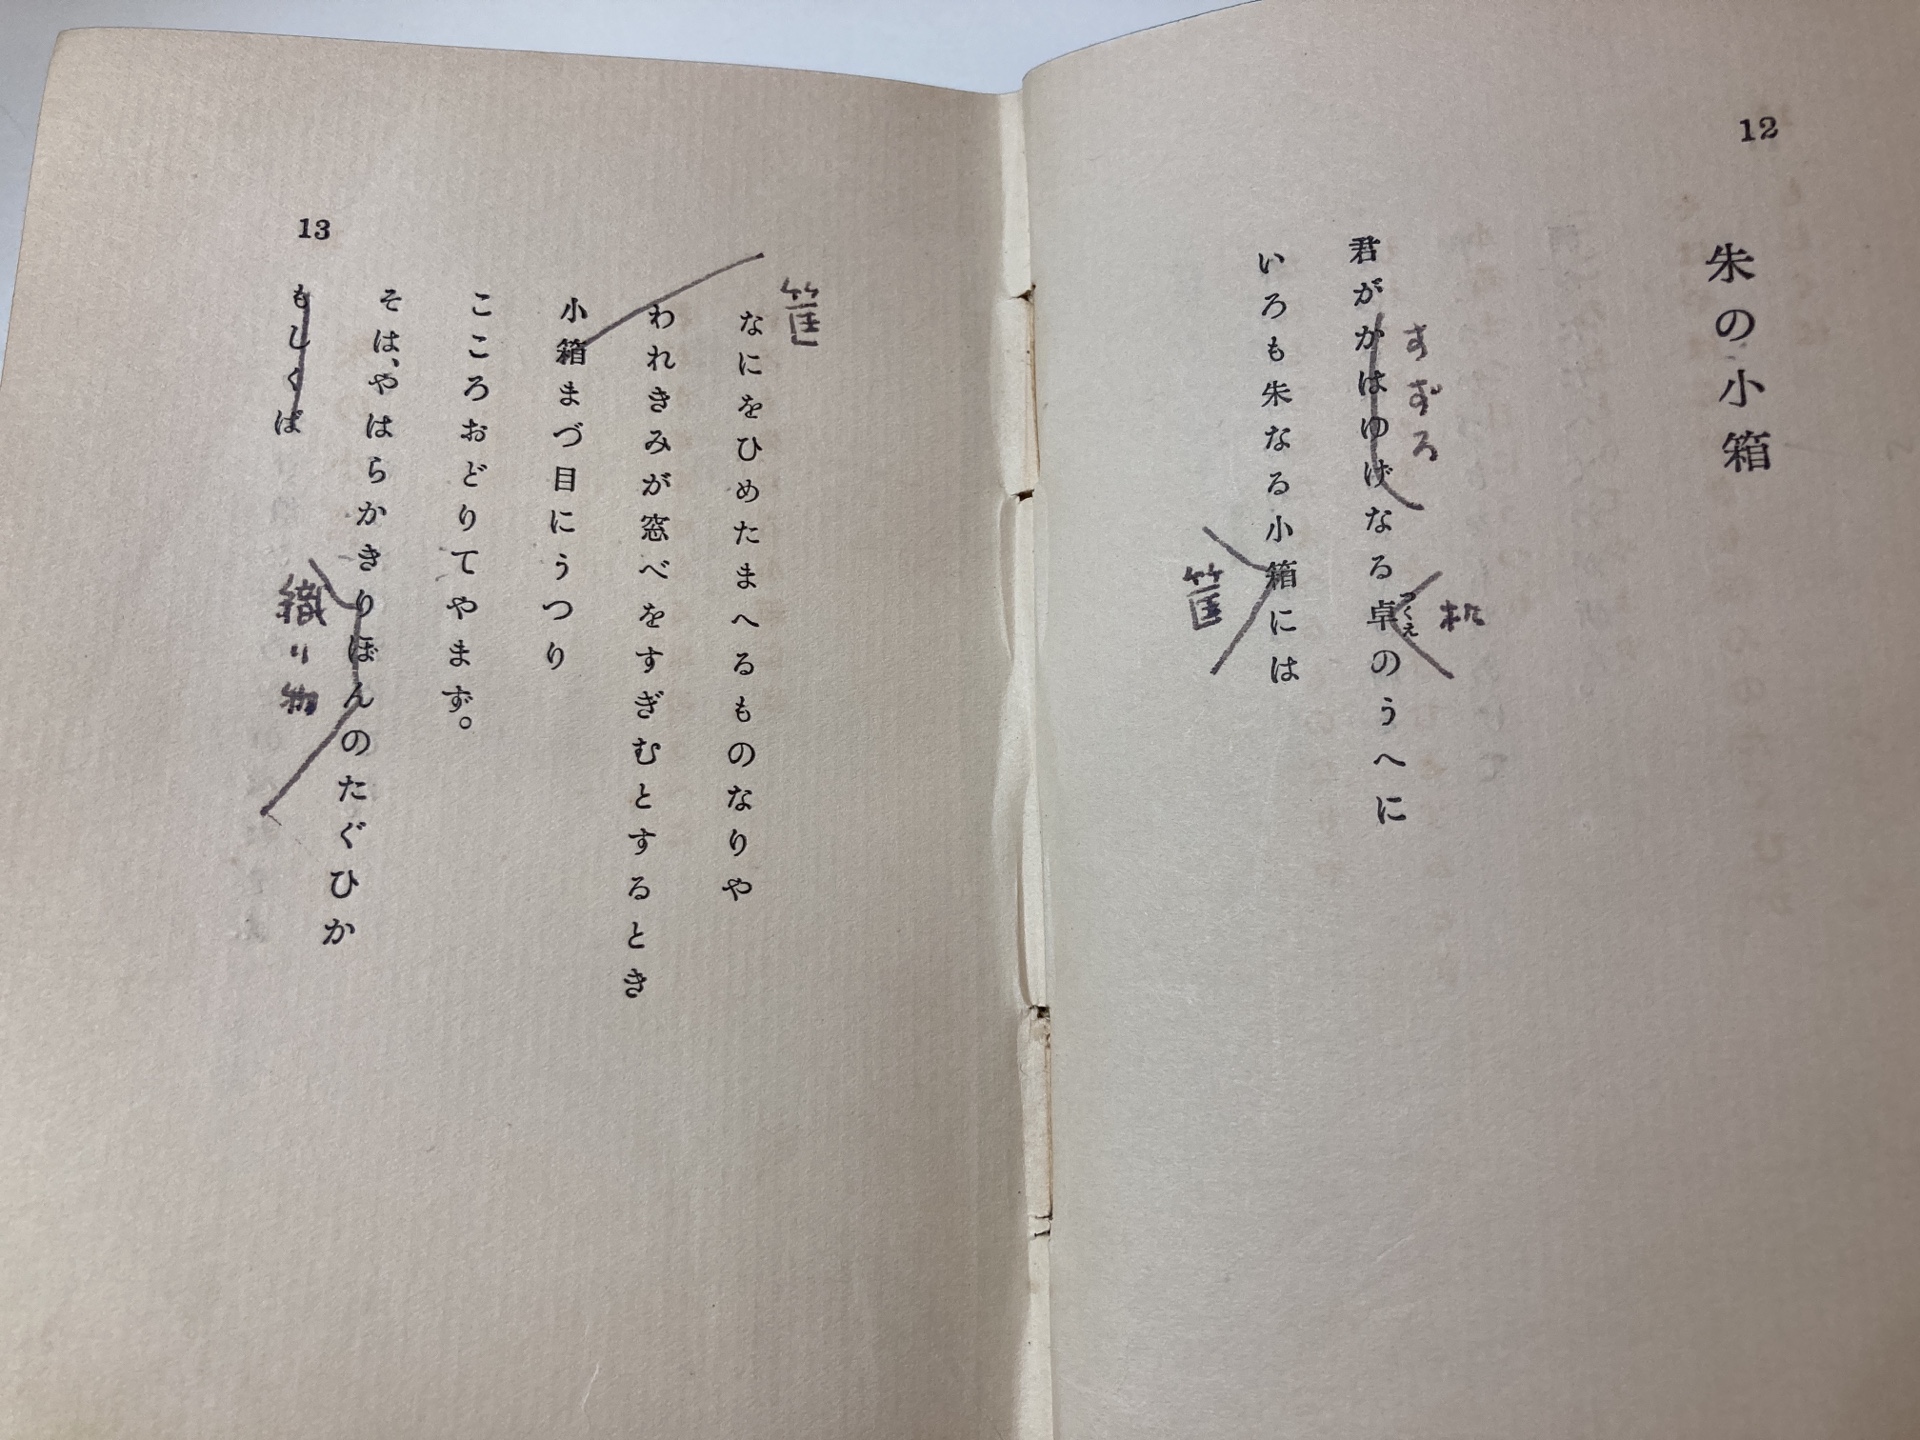 12
朱の小箱
すずろ
君がかはゆげなる卓のうへに
つくえ
机
いろも朱なる小箱には
筐
筐
なにをひめたまへるものなりや
われきみが窓べをすぎむとするとき
小箱まづ目にうつり
こころおどりてやまず。
そは、やはらかきりぼんのたぐひか
織り物
もしくば
13